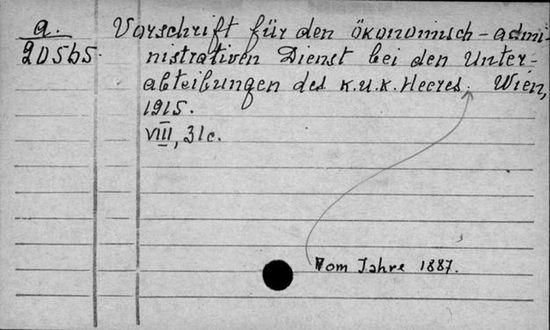 a.
20565.
Vorschrift für den ökonomisch-admi-
nistrativen Dienst bei den Unter-
abteilungen des k.u.k. Heeres. Wien,
1915.
VIII, 31c.
Vom Jahre 1887.